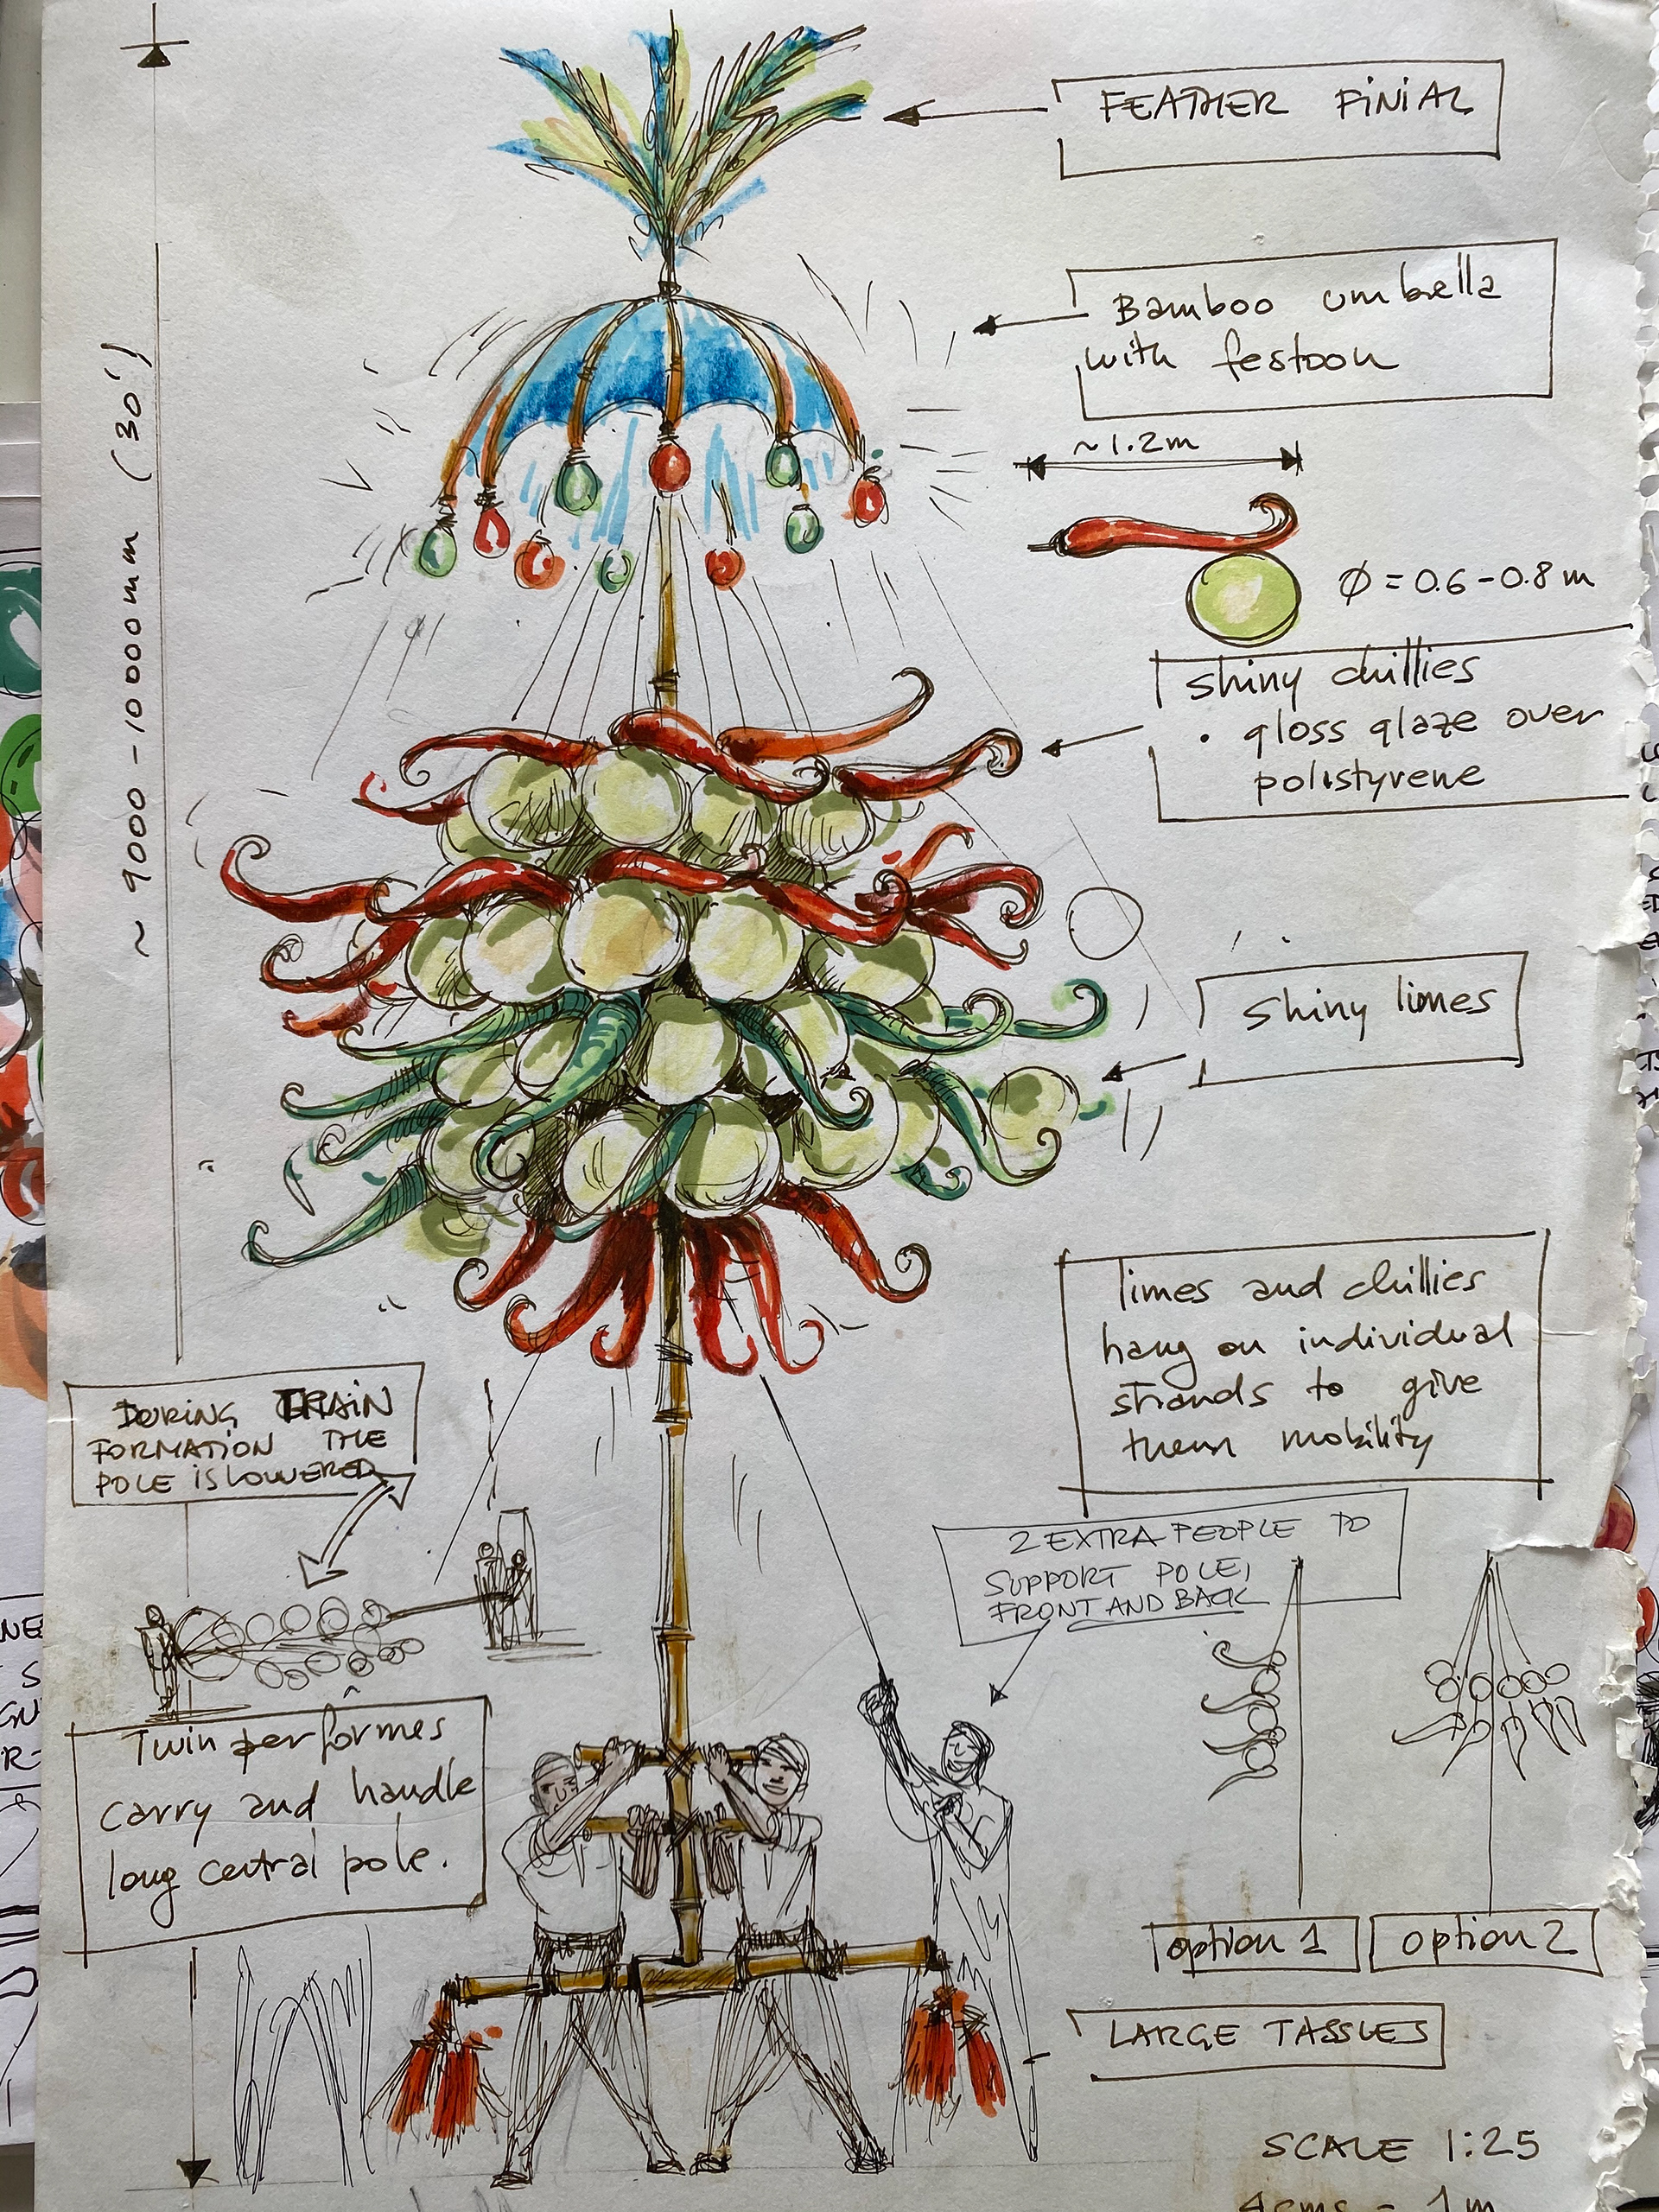 FEATHER FINIAL
Bamboo umbrella
with festoon
~1.2m
Ø = 0.6 - 0.8 m
shiny chillies
• gloss glaze over
polistyrene
~ 9000 - 10000mm (30')
shiny limes
limes and chillies
hang on individual
strands to give
them mobility
DURING TRAIN
FORMATION THE
POLE IS LOWERED
2 EXTRA PEOPLE TO
SUPPORT POLE,
FRONT AND BACK
Twin performes
carry and handle
long central pole.
option 1
option 2
LARGE TASSLES
SCALE 1:25
4cms = 1m